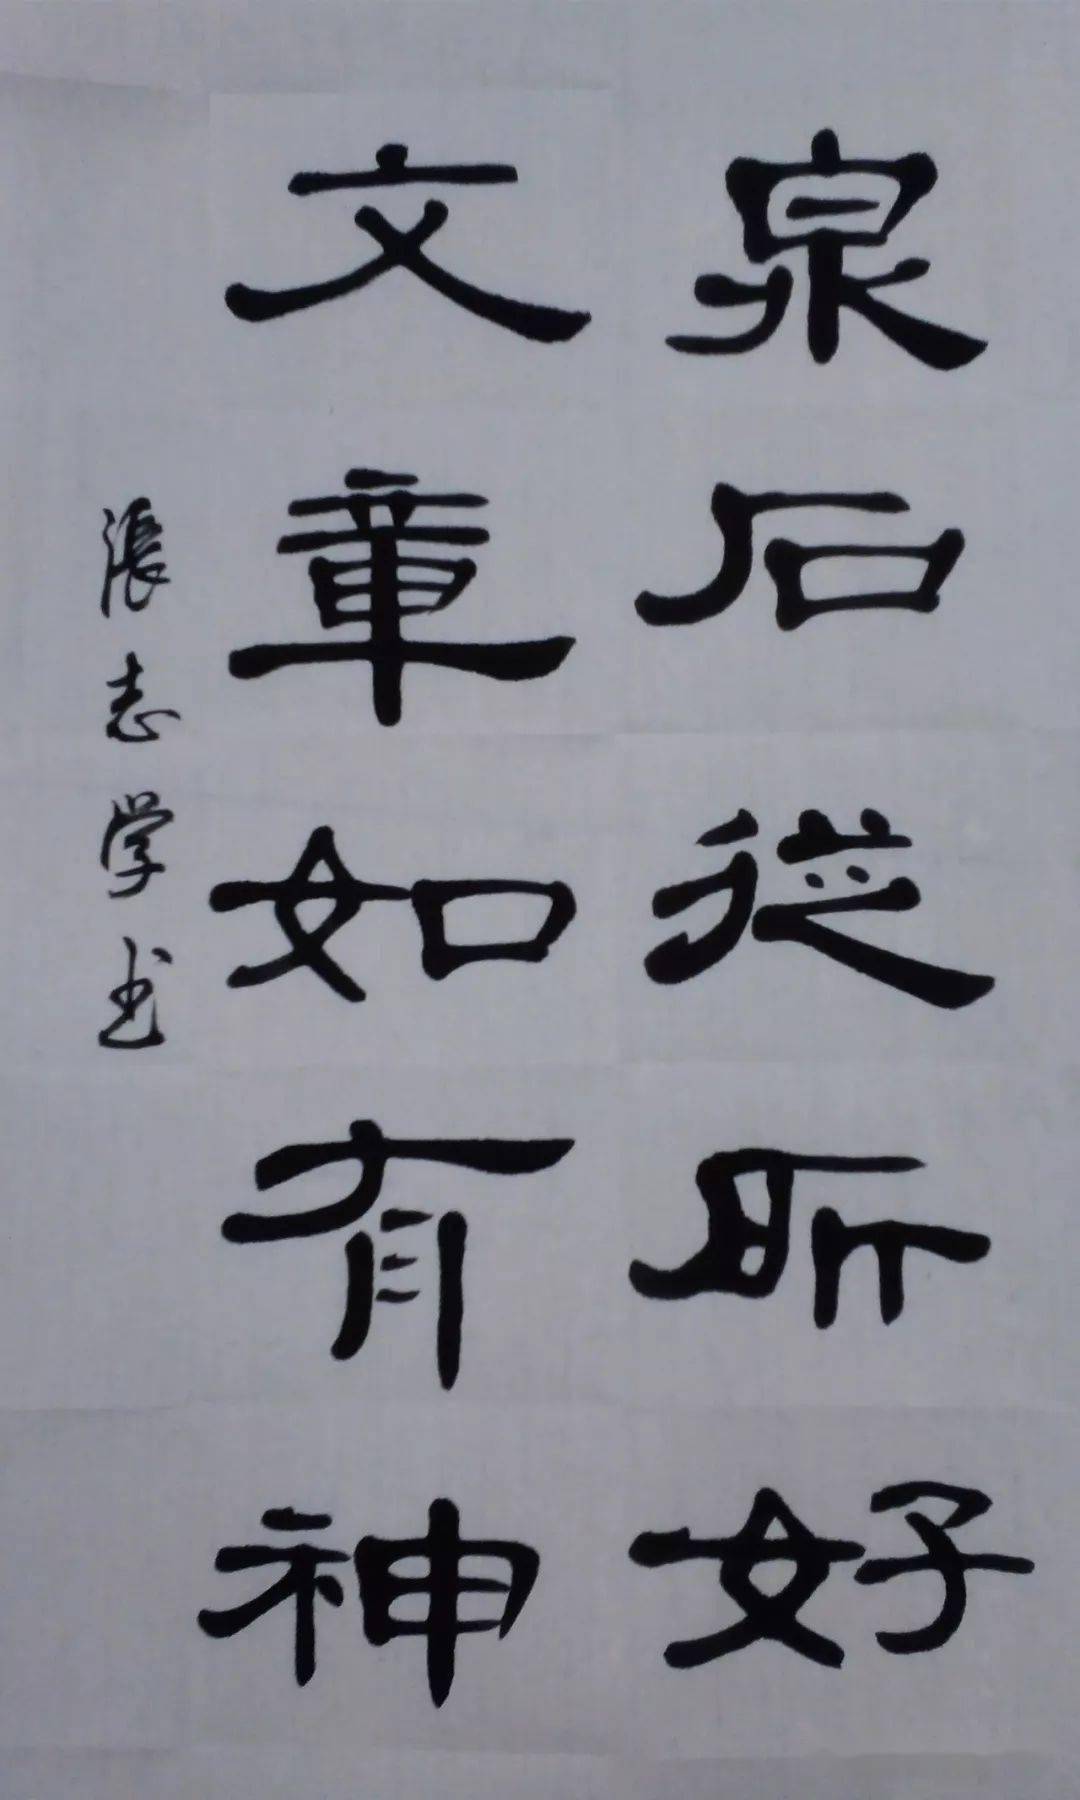 泉石從所好
文章如有神
張志学书